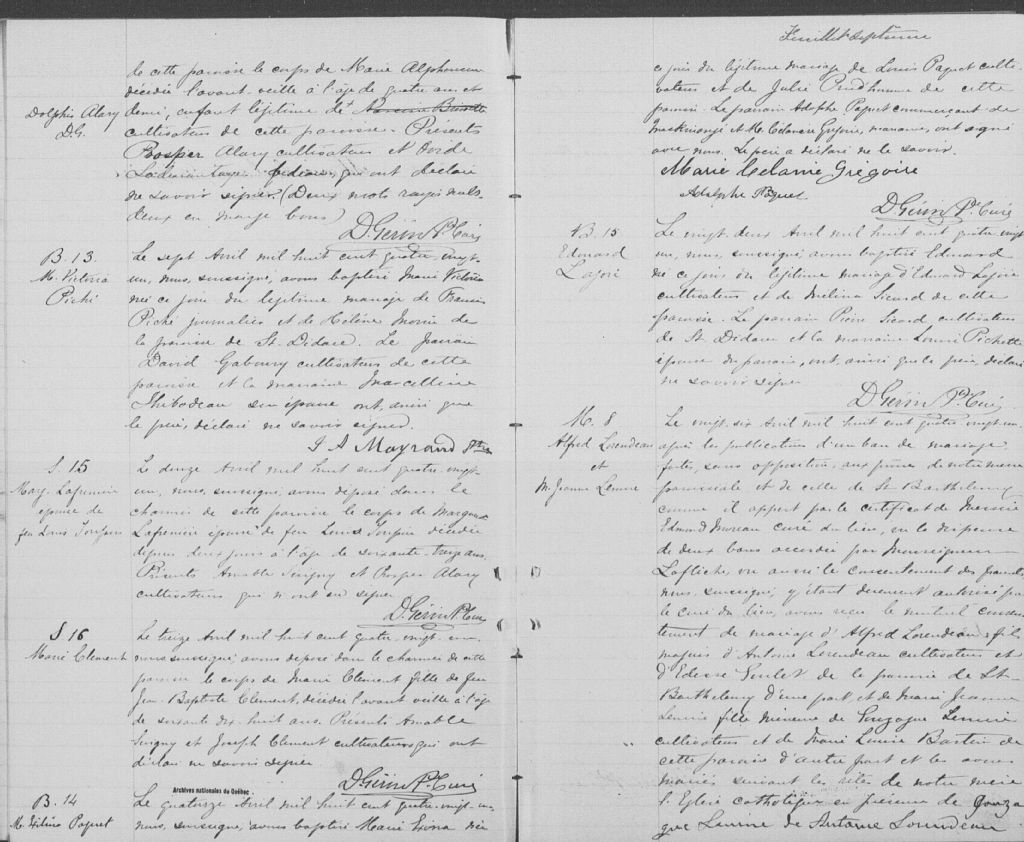 de cette paroisse le corps de Marie Alphonsine
décédée l'avant veille à l'âge de quatre ans et
Dolphis Alary
D.G.
demi, enfant légitime de
cultivateur de cette paroisse. Présents
Prosper Alary cultivateur et Ovide
qui ont déclaré
ne savoir signer. (Deux mots rayés nuls
deux en marge bons)
D. Gérin Ptre Curé
B. 13.
M. Victoria
Piché
Le sept Avril mil huit cent quatre vingt-
un, nous, soussigné, avons baptisé Marie Victoria
née ce jour du légitime mariage de Francis
Piché journalier et de Hélène Morin de
la paroisse de St. Didace. Le parrain
David Gaboury cultivateur de cette
paroisse et la marraine Marcelline
Thibodeau son épouse ont, ainsi que
le père, déclaré ne savoir signer.
J A Mayrand Ptre
S. 15
Marg. Lafrenière
épouse de
feu Louis
Le douze Avril mil huit cent quatre vingt-
un, nous, soussigné, avons déposé dans le
charnier de cette paroisse le corps de Marguerite
Lafrenière épouse de feu Louis décédée
depuis deux jours à l'âge de soixante-treize ans.
Présents Amable Sévigny et Prosper Alary
cultivateurs qui n'ont su signer.
D. Gérin Ptre Curé
S 16
Marie Clement
Le treize Avril mil huit cent quatre vingt un
nous soussigné, avons déposé dans le charnier de cette
paroisse le corps de Marie Clement fille de feu
Jean-Baptiste Clement, décédée l'avant veille à l'âge
de soixante dix huit ans. Présents Amable
Sévigny et Joseph Clement cultivateurs qui ont
déclaré ne savoir signer
D. Gérin Ptre Curé
Archives nationales du Québec
B. 14
M. Paquet
Le quatorze Avril mil huit cent quatre-vingt-un
nous, soussigné, avons baptisé Marie née
Feuillet septième
ce jour du légitime mariage de Louis Paquet culti-
vateur et de Julie Prudhomme de cette
paroisse. Le parrain Adolphe Paquet commerçant de
Maskinongé et M. Célanire Grégoire, marraine, ont signé
avec nous. Le père a déclaré ne le savoir.
Marie Celanie Grégoire
Adolphe Paquet
D. Gérin Ptre Curé
B. 15
Edouard
Lajoie
Le vingt-deux Avril mil huit cent quatre-vingt
un, nous, soussigné, avons baptisé Edouard
né ce jour du légitime mariage d'Edouard Lajoie
cultivateur et de Mélina Sicard de cette
paroisse. Le parrain Pierre Sicard cultivateur
de St. Didace et la marraine Louise Pichette
épouse du parrain, ont, ainsi que le père, déclaré
ne savoir signer
D. Gérin Ptre Curé
M. 8
Alfred Lorendeau
et
M. Jeanne Lemire
Le vingt-six Avril mil huit cent quatre-vingt-un,
après la publication d'un ban de mariage
faite, sans opposition, aux prônes de notre messe
paroissiale et de celle de St. Barthelemy
comme il appert par le certificat de Messire
Edmond Moreau curé du lieu, vu la dispense
de deux bans accordée par Monseigneur
Lafleche, vu aussi le consentement des parents
nous, soussigné, y étant dûment autorisé par
le curé du lieu, avons reçu le mutuel consen-
tement de mariage d'Alfred Lorendeau, fils
majeur d'Antoine Lorendeau cultivateur et
d'Edesse Goulet de la paroisse de St-
Barthelemy d'une part et de Marie Jeanne
Lemire fille mineure de Gonzague Lemire
cultivateur et de Marie Louise de
cette paroisse d'autre part et les avons
mariés suivant les rites de notre mère
l'Eglise catholique en présence de Gonza
gue Lemire de Antoine Lorendeau